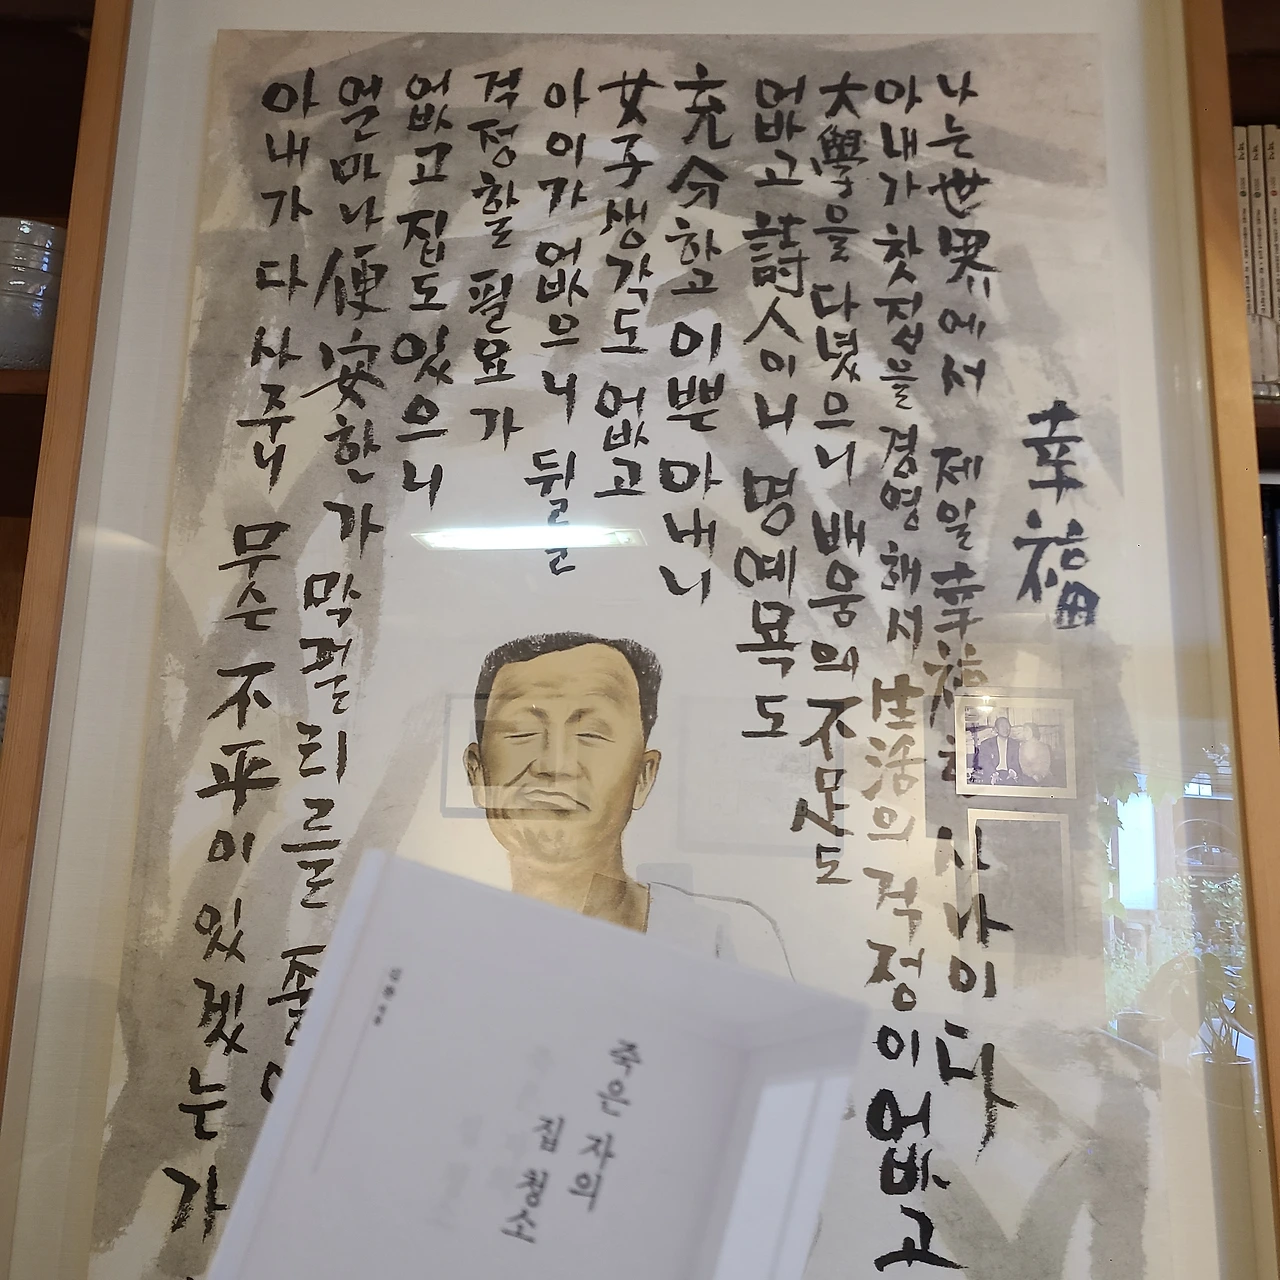 幸福
나는 世界에서 제일 幸福한 사나이다
아내가 찻집을 경영해서 生活의 걱정이 없고
大學을 다녔으니 배움의 不足도
없고 詩人이니 명예욕도
充分하고 이쁜 아내니
女子 생각도 없고
아이가 없으니 뒤를
걱정할 필요가
없고 집도 있으니
얼마나 便安한가 막걸리를 좋아
아내가 다 사주니 무슨 不平이 있겠는가
죽은 자의
집 청소